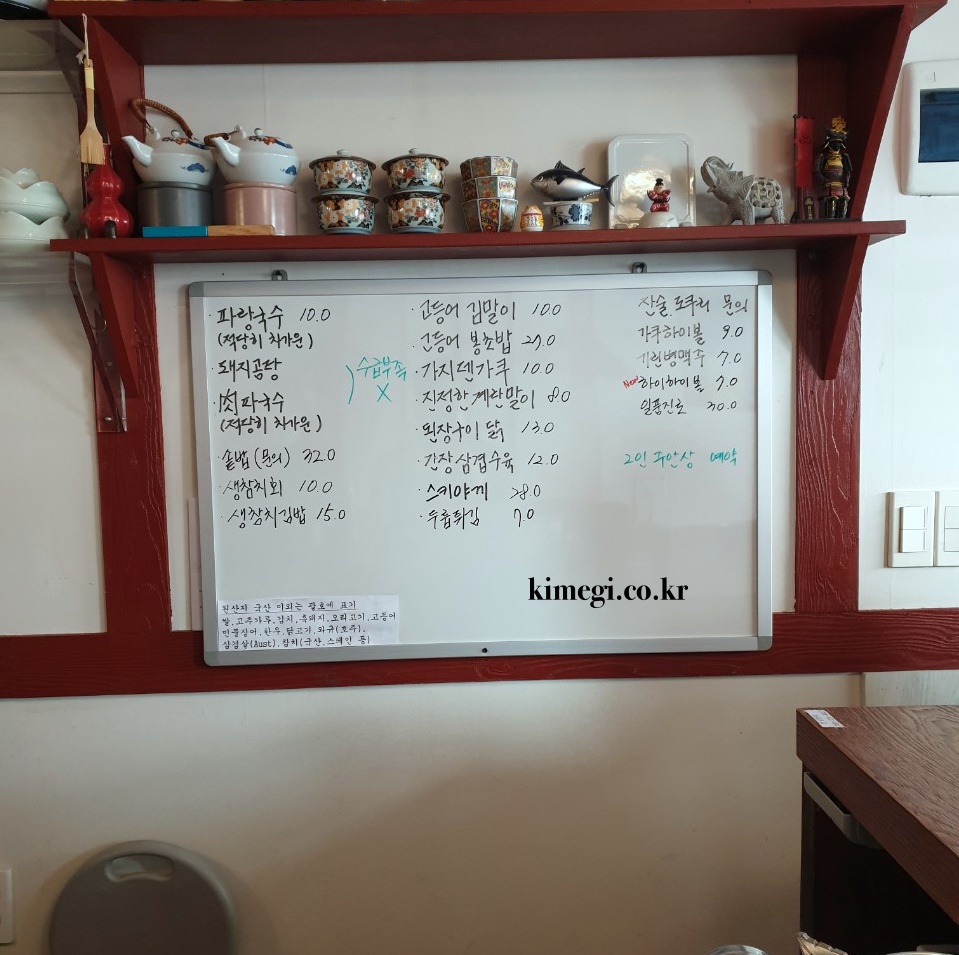 · 파랑국수 10.0
(적당히 차가운)
돼지곰탕
肉파국수
(적당히 차가운)
) 수급부족
X
· 솥밥 (문의) 32.0
· 생참치회 10.0
· 생참치김밥 15.0
· 고등어 김말이 10.0
· 고등어 봉초밥 27.0
· 가지덴가쿠 10.0
· 진정한계란말이 8.0
· 된장구이 닭 13.0
· 간장삼겹수육 12.0
· 스키야끼 28.0
· 두릅튀김 7.0
잔술, 도쿠리 문의
가쿠하이볼 9.0
기린병맥주 7.0
New 하이하이볼 7.0
일품진로 30.0
2인 주안상 예약
원산지 국산 이외는 괄호에 표기
쌀,고추가루,김치,흑돼지,오리고기,고등어
민물장어,한우,닭고기,와규(호주),
삼겹살(Aust),참치(국산,스페인 등)
kimegi.co.kr